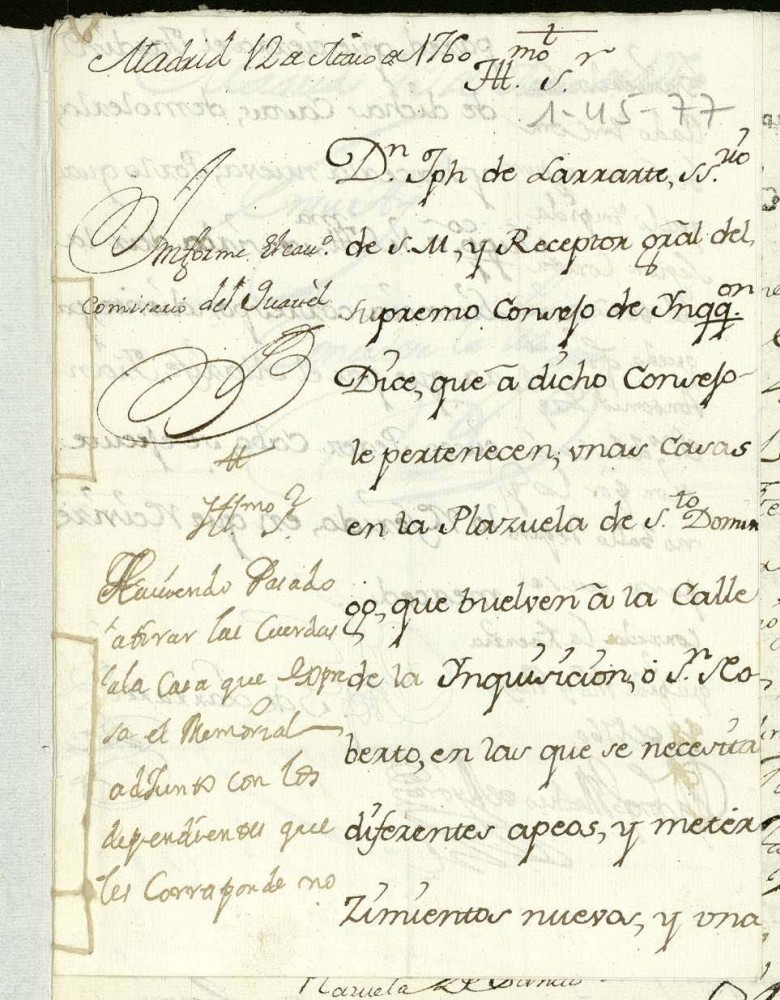 Madrid 12 de Junio de 1760
Yll.mo S.r
1-45-77
D.n Jph de Larrarte, SS.rio
de S.M., y Receptor gral del
supremo Consejo de Inqq.on
Dice, que â dicho Consejo
le pertenecen, vnas Casas
en la Plazuela de S.to Domin
go, que buelven â la Calle
de la Inquisicion, ó S.n Ro
berto, en las que se necesita
diferentes apeos, y meter
Zimientos nuevos, y vna
Informe el cav.o
Comisario del Quartel
Yll.mo S.r
Haviendo Pasado
a tirar las Cuerdas
a la Casa que Expre
sa el Memorial
adJunto con los
dependientes que
les Corresponde no
Plazuela